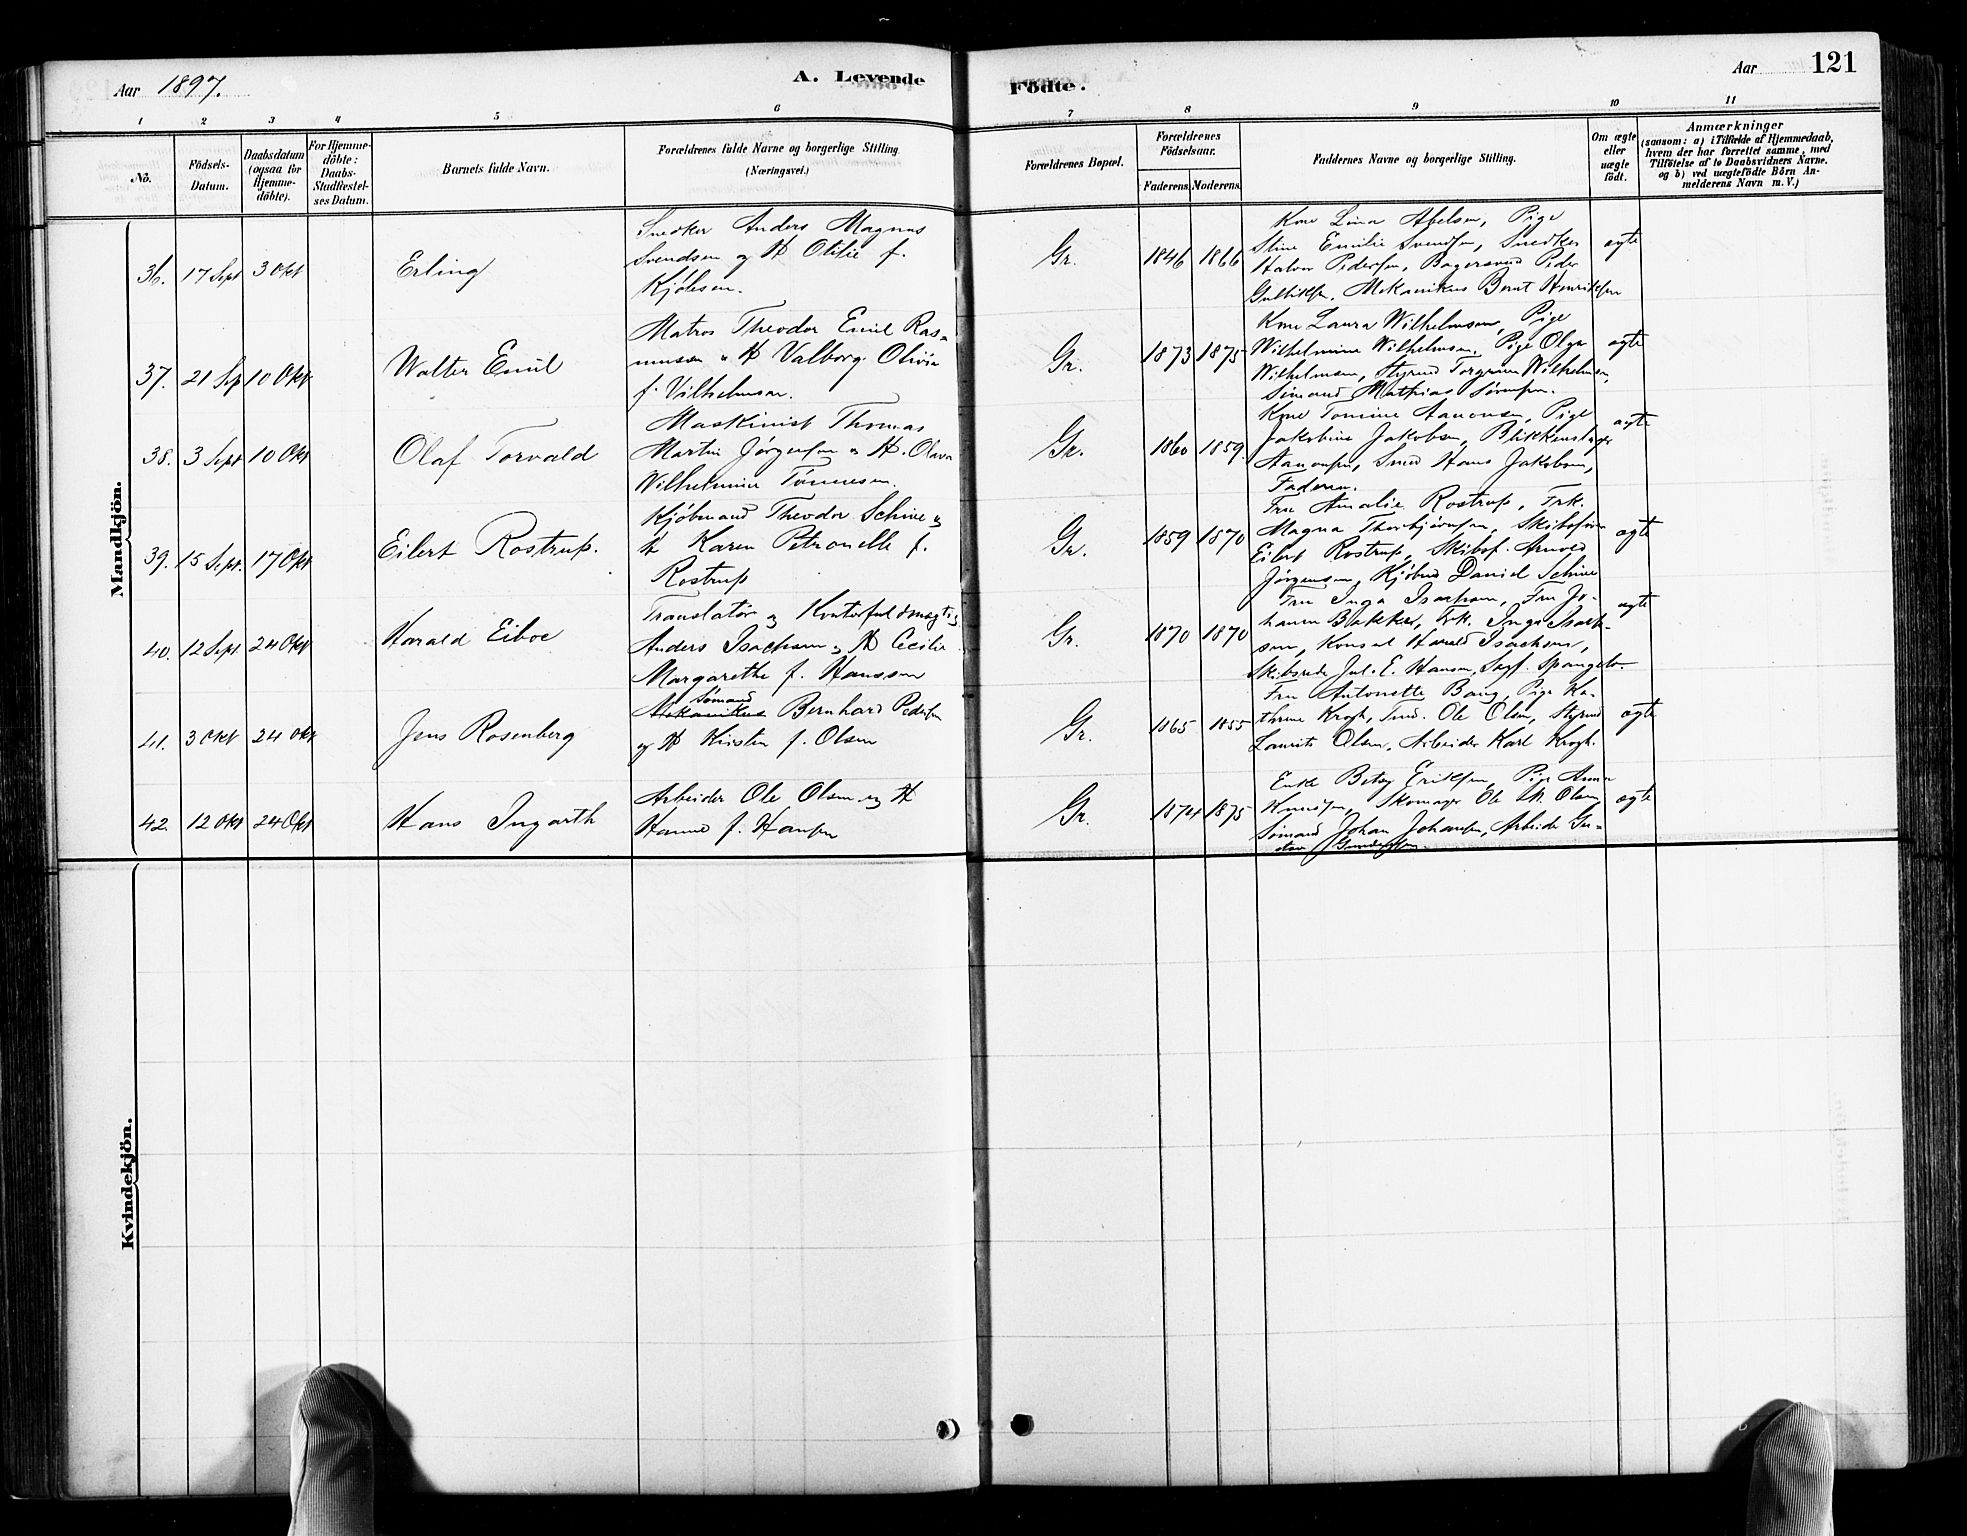 Aar 1897.
A. Levende
Födte.
Aar
121
1 2 3 4 5 6 7 8 9 10 11
No.
Födsels-Datum.
Daabsdatum (ogsaa for Hjemme-döbte).
For Hjemme-döbte: Daabs-Stadfæstel-ses Datum.
Barnets fulde Navn.
Forældrenes fulde Navne og borgerlige Stilling (Næringsvei.)
Forældrenes Bopæl.
Forældrenes Födselsaar.
Faderens. Moderens.
Faddernes Navne og borgerlige Stilling.
Om ægte eller uægte födt.
Anmærkninger
(saasom: a) i Tilfælde af Hjemmedaab,
hvem der har forrettet samme, med
Tilföielse af to Daabsvidners Navne.
og b) ved uægtefödte Börn An-
melderens Navn m. V.)
Mandkjön.
36. 17 Sept 3 Okt
Erling
Snedker Anders Magnus
Svendsen og H Otilie f.
Kjølesen.
Gr. 1846 1866
Kone Lina Abelsen, Pige
Stine Emilie Svendsen, Snedker
Halvor Pedersen, Bagersvend Peder
Gulliksen, Mekanikus Bernt Henriksen
ægte
37. 21 Sp 10 Okt
Walter Emil
Matros Theodor Emil Ras-
mussen og H Valborg Olivia
f. Vilhelmsen.
Gr. 1873 1875
Kone Laura Wilhelmsen, Pige
Wilhelmine Wilhelmsen, Pige Olga
Wilhelmsen, Styrmd Torgrim Wilhelmsen,
Sömand Mathias Sørensen.
ægte
38. 3 Sept 10 Okt
Olaf Torvald
Maskinist Thomas
Martin Jørgensen og H. Olava
Wilhelmine Tønnesen.
Gr. 1860 1859.
Kone Tomine Aanonsen, Pige
Jakobine Jakobsen, Blikkenslager
Aanonsen, Smed Hans Jakobsen,
Faderen.
ægte
39. 15 Sept. 17 Okt
Eilert Rostrup.
Kjøbmand Theodor Schive og
H Karen Petronelle f.
Rostrup
Gr. 1859 1870
Fru Amalie Rostrup, Frk.
Magna Thorbjørnsen, Skibsfører
Eilert Rostrup, Skibsf. Arnved
Jørgensen, Kjøbmd Daniel Schive
ægte
40. 12 Sept 24 Okt
Harald Eiboe
Translatør og Kontorfuldmægtig
Anders Isachsen og H Cecilie
Margarethe f. Hanssen
Gr. 1870 1870
Fru Inga Isachsen, Fru Jo-
hanna Bakker, Frk. Inga Isach-
sen, Konsul Harald Isachsen,
Skibsrede Jul. E. Hansen, Sagf. Spangelo.
ægte
41. 3 Okt 24 Okt
Jens Rosenberg
Sømand
Mekanikus Bernhard Pedersen
og H Kirsten f. Olsen
Gr. 1865 1855
Fru Antonette Bang, Pige Ka-
thrine Krogh, Ole Olsen, Styrmd
Laurits Olsen, Arbeider Karl Krogh.
ægte
42. 12 Okt 24 Okt
Hans Ingarth
Arbeider Ole Olsen og H
Hanne f. Hansen
Gr. 1874 1875
Enke Betsy Eriksen, Pige Anna
Knudsen, Skomager Ole M. Olsen,
Sömand Johan Johansen, Arbeider Gu-
stav Gundersen.
ægte
Kvindekjön.